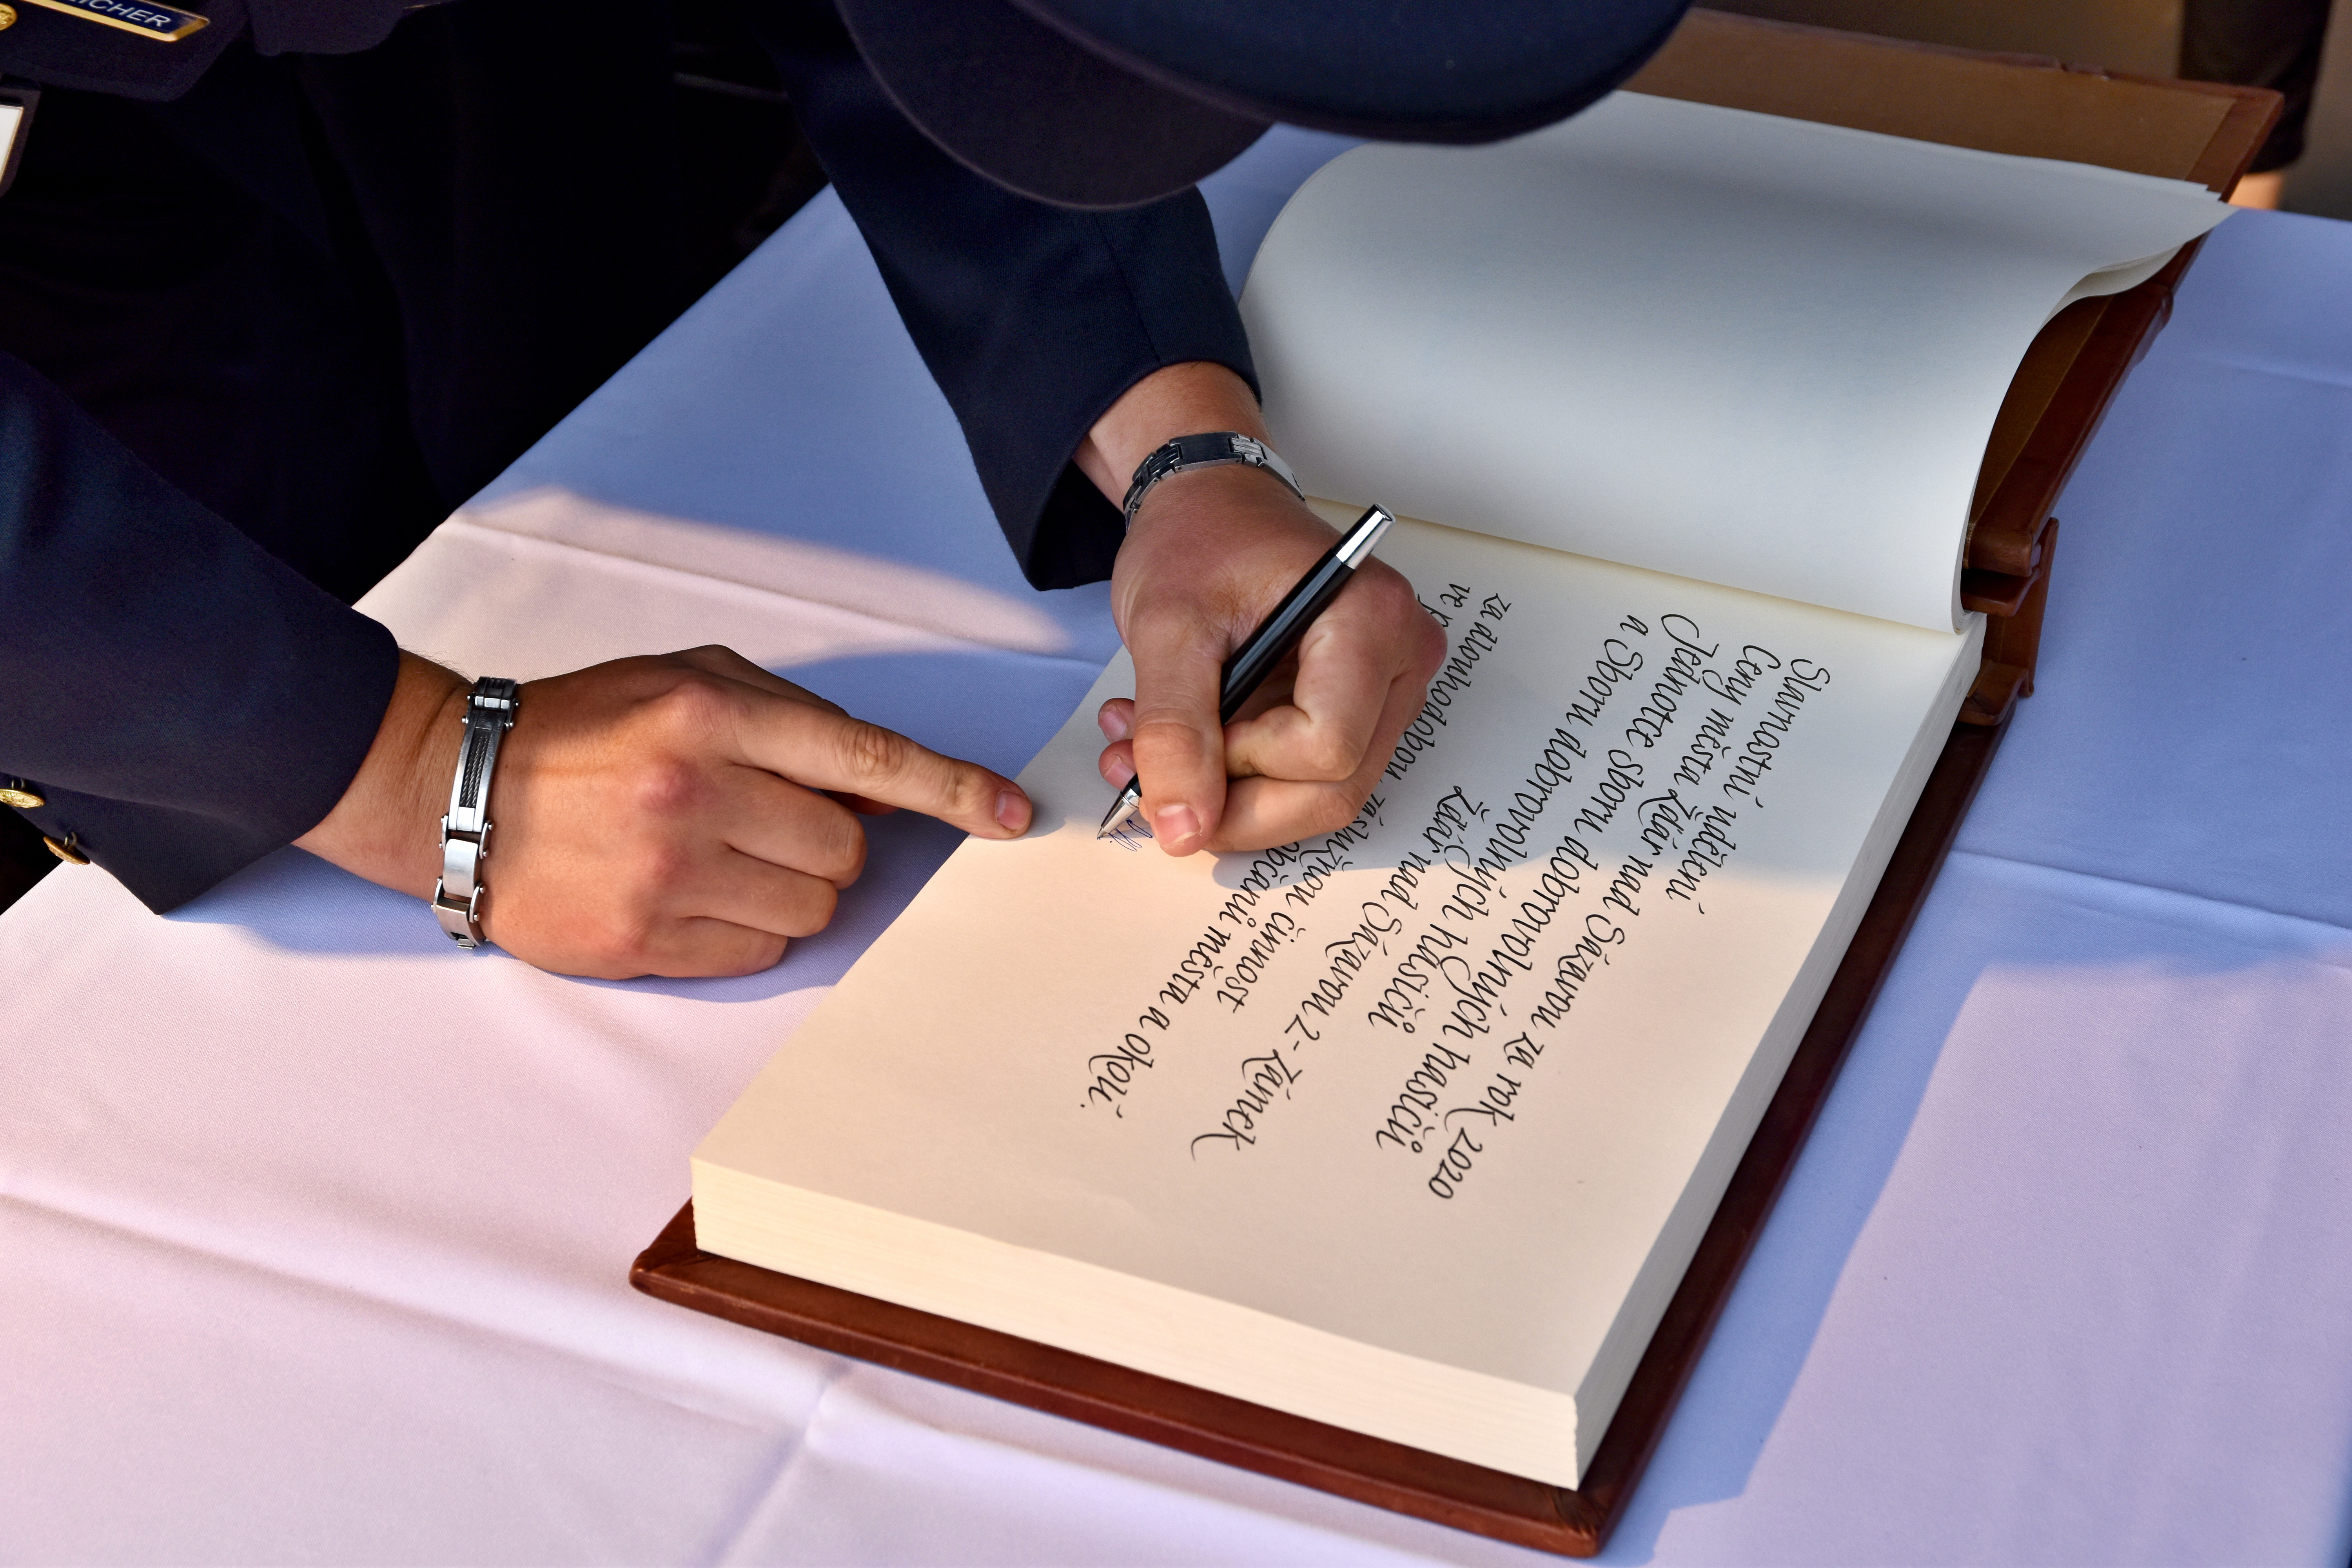 EICHER
Slavnostní udělení
Ceny města Žďár nad Sázavou za rok 2020
Jednotce sboru dobrovolných hasičů
a Sboru dobrovolných hasičů
Žďár nad Sázavou 2 - Zámek
za dlouhodobou, záslužnou činnost
ve občanů města a okolí.